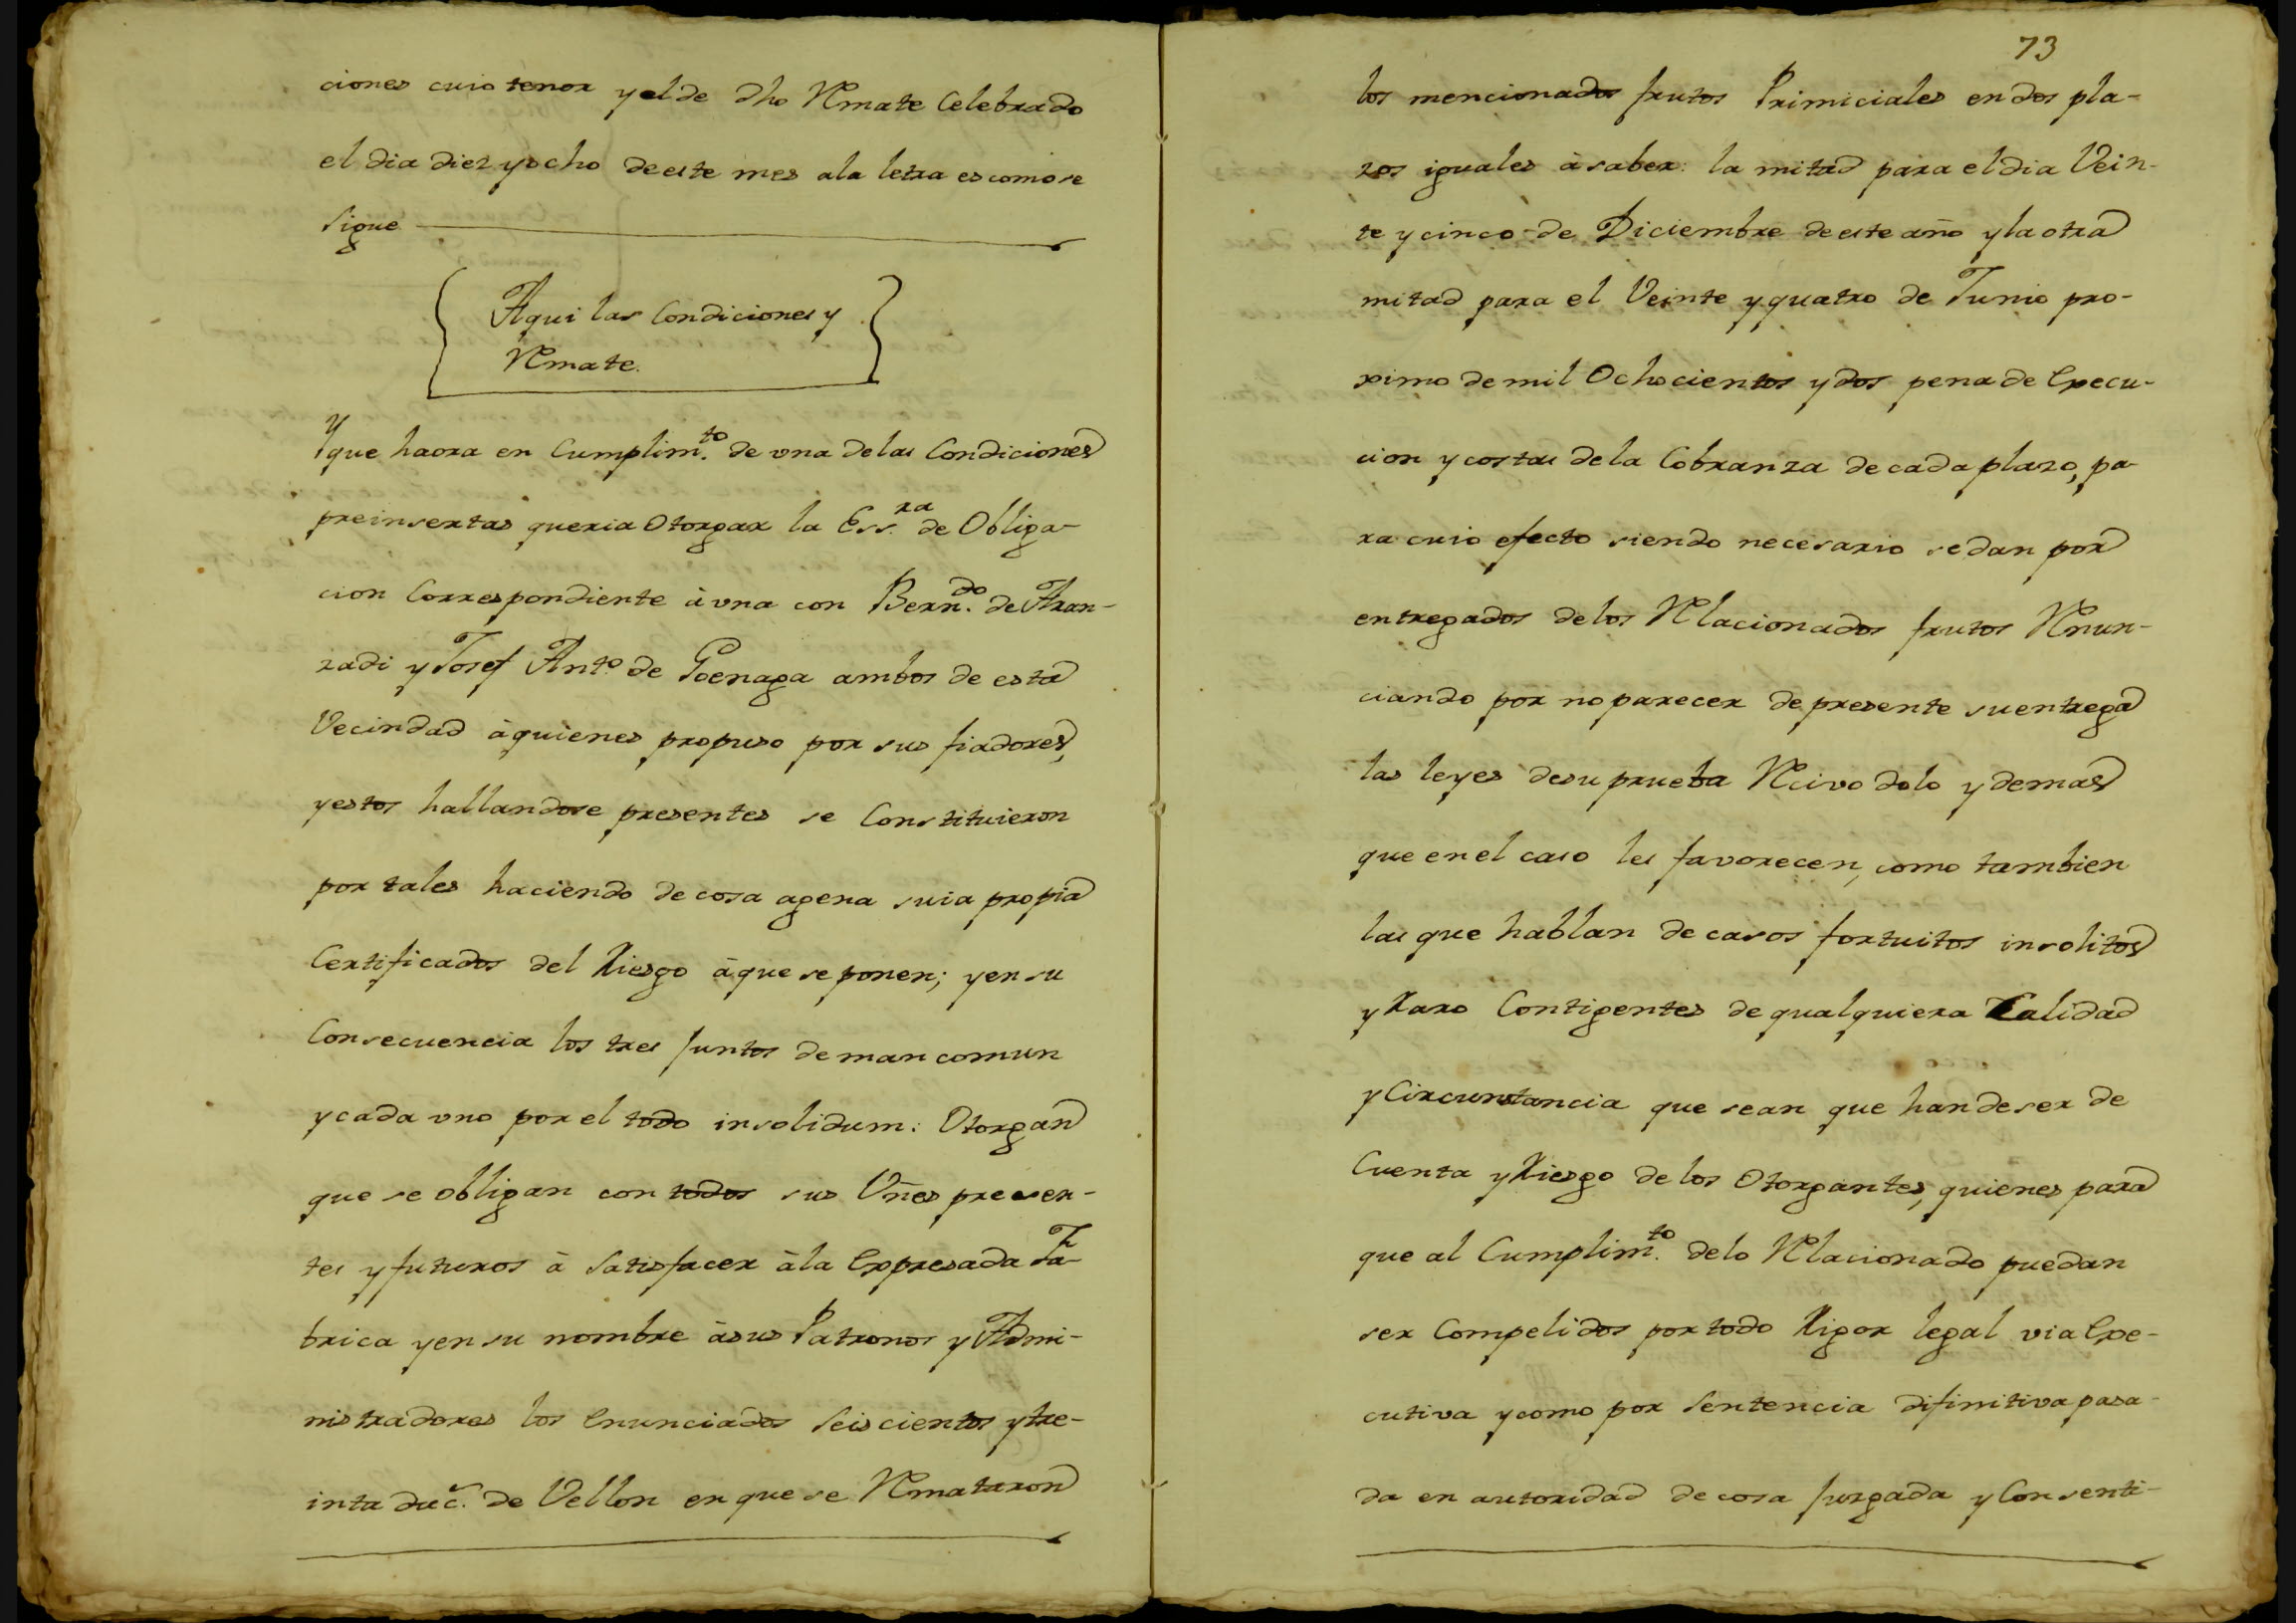 ciones cuio tenor y el de dho Remate Celebrado
el dia diez y ocho de este mes ala letra es como se
sigue
Aqui las Condiciones y
Remate.
Y que haora en Cumplim.to de vna de las Condiciones
preinsertas queria Otorgar la Ess.ra de Obliga-
cion Correspondiente à vna con Bern.do de Aran-
zadi y Josef Ant.o de Goenaga ambos de esta
Vecindad à quienes propuso por sus fiadores,
y estos hallandose presentes se Constituieron
por tales haciendo de cosa agena suia propia
Certificados del Riesgo à que se ponen; y en su
Consecuencia los tres Juntos de man comun
y cada vno por el todo insolidum: Otorgan
que se obligan con todos sus Vñes presen-
tes y futuros à Satisfacer àla Expresada Fa-
brica y en su nombre à sus Patronos y Admi-
nistradores los Enunciados Seiscientos y tre-
inta duc.s de Vellon en que se Remataron
73
los mencionados frutos Primiciales en dos pla-
zos iguales à saber: la mitad para el dia Vein-
te y cinco de Diciembre de este año y la otra
mitad para el Veinte y quatro de Junio pro-
ximo de mil Ochocientos y dos pena de Execu-
cion y costas de la Cobranza de cada plazo, pa-
ra cuio efecto siendo necesario se dan por
entregados de los Relacionados frutos Renun-
ciando por no parecer de presente su entrega
las leyes de su prueba Recivo dolo y demas
que en el caso les favorecen, como tambien
las que hablan de casos fortuitos insolitos
y Raro Contigentes de qualquiera Calidad
y Circunstancia que sean que han de ser de
Cuenta y Riesgo de los Otorgantes, quienes para
que al Cumplim.to delo Relacionado puedan
ser Compelidos por todo Rigor legal via Exe-
cutiva y como por Sentencia difinitiva pasa-
da en autoridad de cosa Juzgada y Consenti-